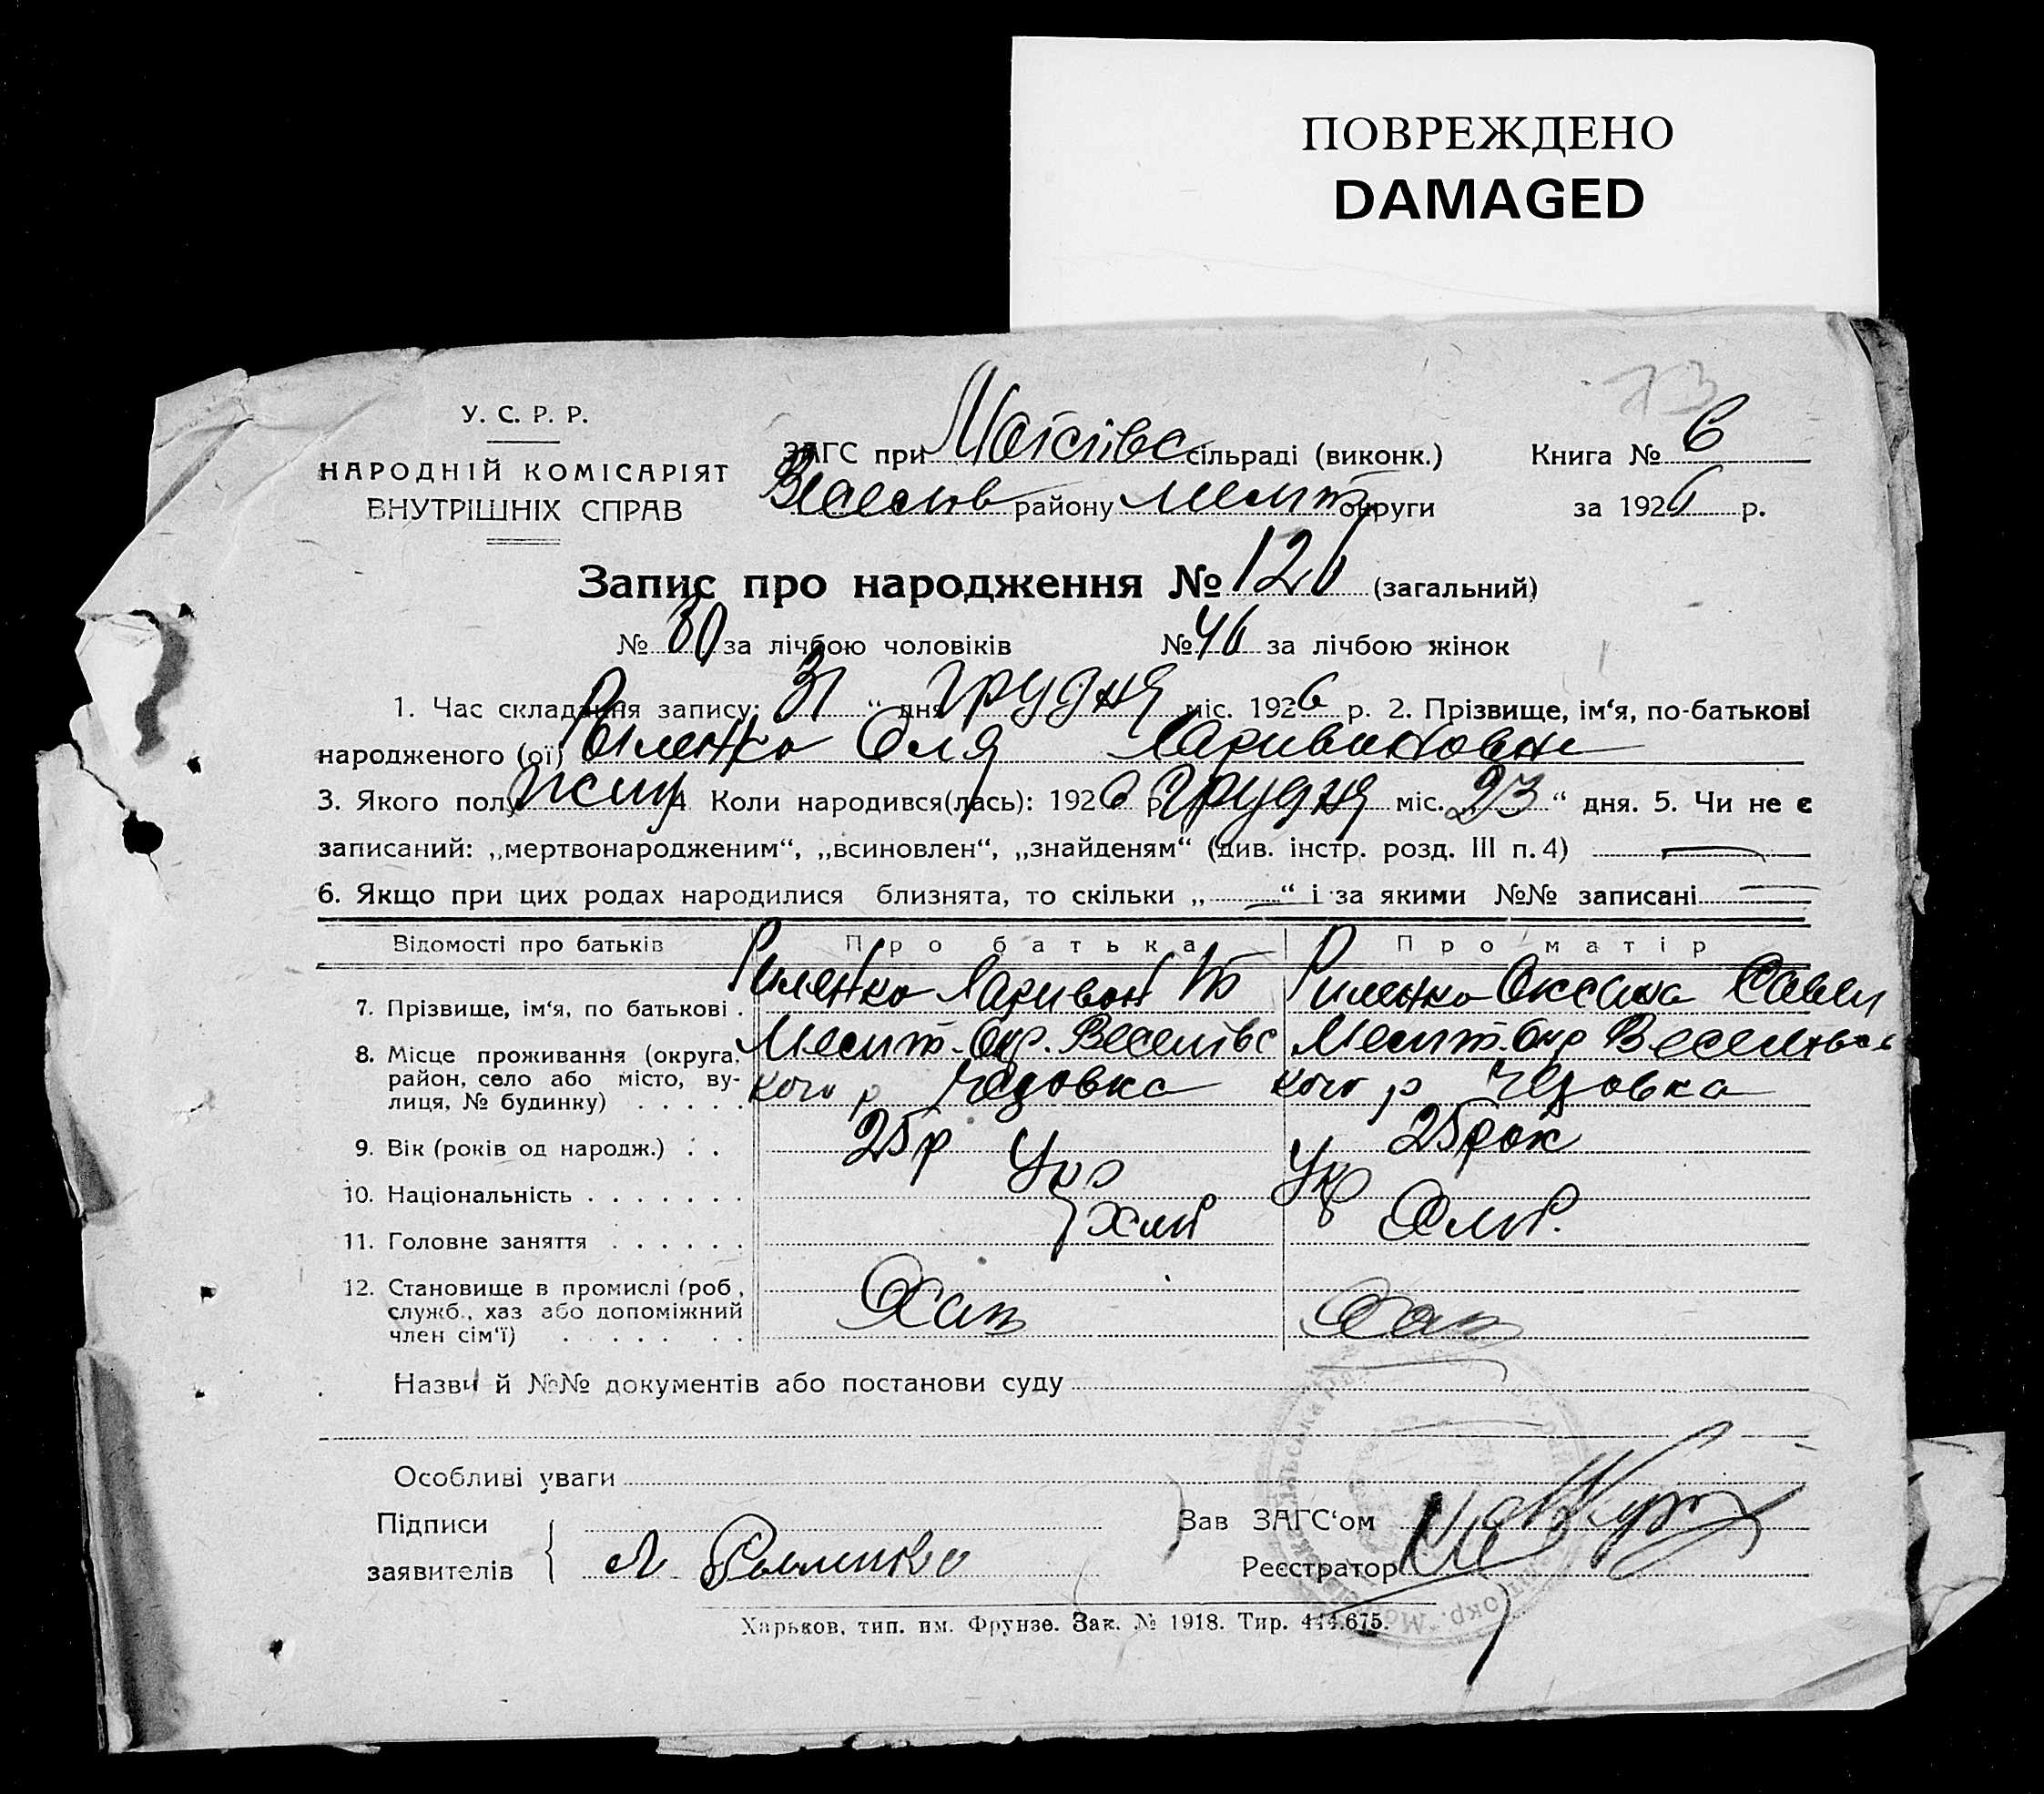 ПОВРЕЖДЕНО
DAMAGED
73
У. С. Р. Р.
НАРОДНІЙ КОМІСАРІЯТ
ВНУТРІШНІХ СПРАВ
ЗАГС при Моісіївс сільраді (виконк.) Книга № 6
Веселів району Меліт округи за 1926 р.
Запис про народження № 126 (загальний)
№ 80 за лічбою чоловіків № 46 за лічбою жінок
1. Час складання запису: 31 “ дня Грудня міс. 1926 р. 2. Прізвище, ім‘я, по-батькові
народженого (ої) Риленко Оля Ларивоновна
3. Якого полу жін 4 Коли народився(лась): 1926 р Грудня міс. 23 “ дня. 5. Чи не є
записаний: „мертвонародженим“, „всиновлен“, „знайденям“ (див. інстр. розд. III п. 4) —
6. Якщо при цих родах народилися близнята, то скільки „ — “ і за якими №№ записані —
Відомості про батьків Про батька Про матір
7. Прізвище, ім‘я, по батькові . Риленко Ларивон Риленко Оксана Савел
8. Місце проживання (округа, район, село або місто, ву- лиця, № будинку) . . . . . Меліт. Окр. Веселівс кого р Меліт. Окр Веселівсь кого р
9. Вік (років од народж.) . . . 25 р 25 рок
10. Національність . . . . . . . Укр Укр
11. Головне заняття . . . . . . Хліб Хліб.
12. Становище в промислі (роб., служб., хаз або допоміжний член сім‘ї) . . . . . . . Хаз Хаз
Назви й №№ документів або постанови суду
Особливі уваги
Підписи
заявителів Л Рыленко
Зав ЗАГС‘ом
Реєстратор
Харьков, тип. им. Фрунзе. Зак. № 1918. Тир. 444.675.